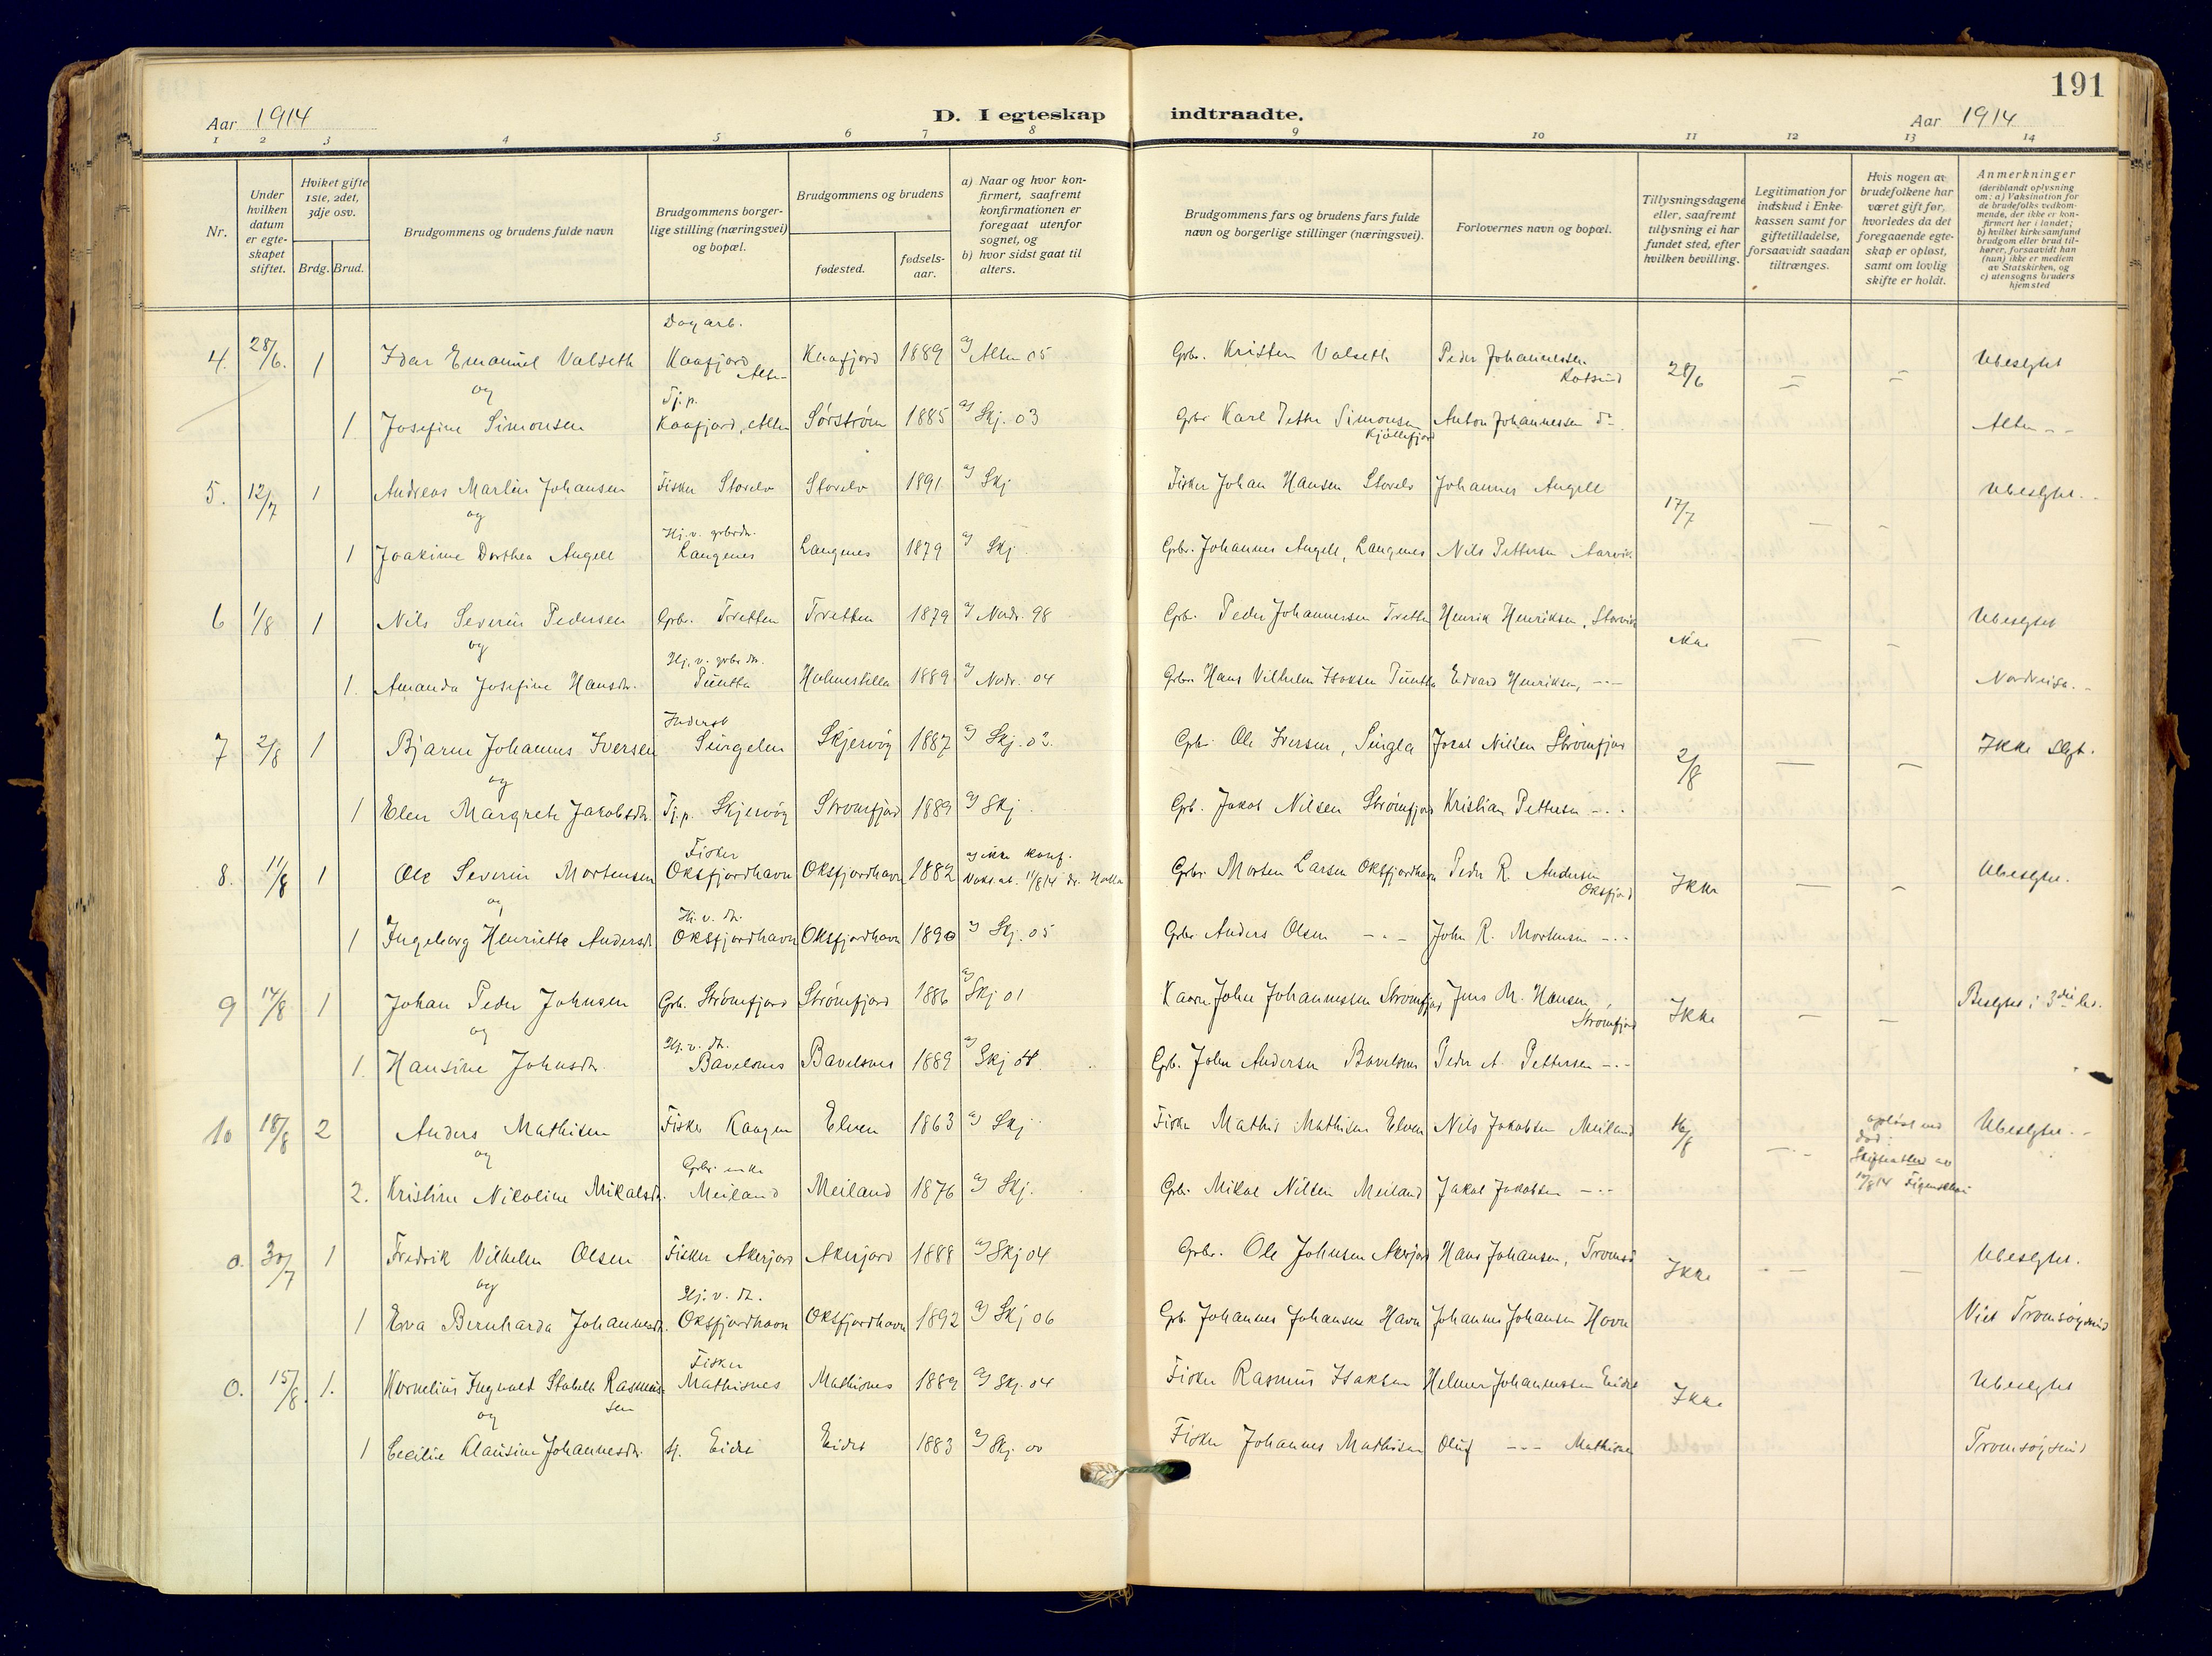 191
Aar 1914
D. I egteskap indtraadte.
Aar 1914
1 2 3 4 5 6 7 8 9 10 11 12 13 14
Nr.
Under hvilken datum er egte-skapet stiftet.
Hvilket gifte 1ste, 2det, 3dje osv.
Brdg. Brud.
Brudgommens og brudens fulde navn
Brudgommens borger-lige stilling (næringsvei) og bopæl.
Brudgommens og brudens
fødested.
fødsels-aar.
a) Naar og hvor kon-firmert, saafremt konfirmationen er foregaat utenfor sognet, og
b) hvor sidst gaat til alters.
Brudgommens fars og brudens fars fulde navn og borgerlige stillinger (næringsvei).
Forlovernes navn og bopæl.
Tillysningsdagene eller, saafremt tillysning ei har fundet sted, efter hvilken bevilling.
Legitimation for indskud i Enke-kassen samt for giftetilladelse, forsaavidt saadan tiltrænges.
Hvis nogen av brudefolkene har været gift før, hvorledes da det foregaaende egte-skap er opløst, samt om lovlig skifte er holdt.
Anmerkninger
(deriblandt oplysning om: a) Vaksination for de brudefolks vedkom-mende, der ikke er kon-firmert her i landet; b) hvilket kirkesamfund brudgom eller brud til-hører, forsaavidt han (hun) ikke er medlem av Statskirken, og c) utensogns bruders hjemsted
Dagarb.
4. 28/6. 1 Idar Emanuel Valseth Kaafjord Alten Kaafjord 1889 a) Alten 05 Grbr. Kristen Valseth Peder Johannessen Rotsund 28/6 Ubeslgtet
og Tj. p.
1 Josefine Simonsen Kaafjord, Alten Sørstrøm 1885 a) Skj. 03 Grbr Karl Petter Simonsen Kjøllefjord Anton Johannessen do Alten
5. 12/7 1 Andreas Martin Johansen Fisker Storelv Storelv 1891 a) Skj Fisker Johan Hansen Storelv Johannes Angell 17/7 Ubeslgtet
og Hj. v. grbrdtr.
1 Joakime Dorthea Angell Langenes Langenes 1879 a) Skj Grbr. Johannes Angell, Langenes Nils Pettersen Aarvik
6 1/8 1 Nils Severin Pedersen Grbr. Tretten Tretten 1879 a) Nordr. 98 Grbr. Peder Johannessen Tretten Henrik Henriksen, Storvik Ikke Ubeslgtet
og Hj. v. grbr dtr.
1. Amanda Josefine Hansdtr. Puntta Holmestilla 1889 a) Nordr. 04 Grbr Hans Vilhelm Isaksen Puntta Edvard Henriksen, Nordreisa
7 2/8 1 Bjarne Johannes Iversen Singelen Skjervøy 1887 a) Skj. 02. Grbr. Ole Iversen, Singla Jakob Nilsen Strømfjord 2/8 Ikke Slgt.
og
1 Elen Margrete Jakobsdtr. Tj. p. Skjervøy Strømfjord 1889 a) Skj. Grb. Jakob Nilsen Strømfjord Kristian Pettersen
Fisker
8. 11/8 1 Ole Severin Mortensen Oksfjordhavn Oksfjordhavn 1882 a) ikke konf. Vaks. at. 11/8 14 dr. Holla Grbr. Morten Larsen Oksfjordhavn Peder R. Andersen Oksfjord Ikke Ubeslgtet.
og Hj. v. dtr.
1 Ingeborg Henriette Andersdtr Oksfjordhavn Oksfjordhavn 1890 a) Skj. 05 Grbr Anders Olsen John R. Mortensen
9 14/8 1 Johan Peder Johnsen Grb. Strømfjord Strømfjord 1886 a) Skj 01 John Johannessen Strømfjord Jens M. Hansen, Strømfjord Ikke Beslgtet i 3die led.
og Hj. v. dtr.
1. Hansine Johnsdtr. Bavelsnes Bavelsnes 1889 a) Skj 04 Grb. John Andersen Bavelsnes Peder A. Pettersen
10 18/8 2 Anders Mathisen Fisker Kaagen Elven 1863 a) Skj Fisker Mathis Mathisen Elven Nils Jakobsen Meiland 16/8 opløst ved død. Skifteattest av 10/8 14 Ubeslgtet.
og Grbr. enke
2. Kristine Nikoline Mikalsdtr. Meiland Meiland 1876 a) Skj. Grbr. Mikal Nilsen Meiland Jakob Jakobsen
0. 30/7 1 Fredrik Vilhelm Olsen Fisker Akerjord Akerjord 1888 a) Skj 04 Grbr. Ole Johnsen Akerjord Hans Johansen, Tromsø Ikke Ubeslgtet.
og Hj. v. dtr.
1 Eva Bernharda Johannesdtr. Oksfjordhavn Oksfjordhavn 1892 a) Skj 06 Grb. Johannes Johansen Havn Johannes Johansen Havn Viet Tromsøysund
Fisker
0. 15/8. 1. Kornelius Ingvald Rasmussen Mathisnes Mathisnes 1889 a) Skj. 04 Fisker Rasmus Isaksen Helmer Johannessen Eidet Ikke Ubeslgtet
og
1 Cecilie Klausine Johannesdtr. Hj. Eidet Eidet 1883 a) Skj. 00 Fisker Johannes Mathisen Oluf Mathisnes Tromsøysund